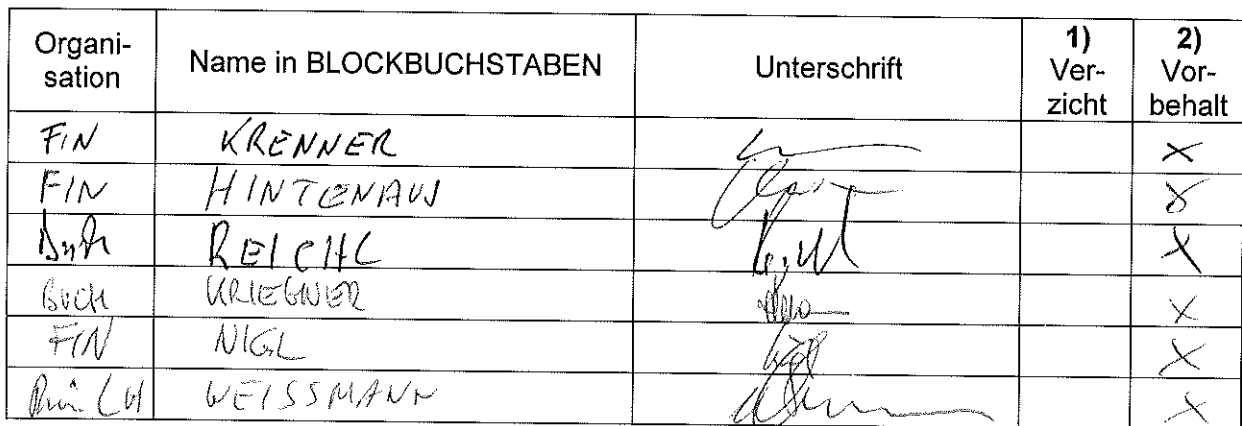 Organi-
sation
Name in BLOCKBUCHSTABEN
Unterschrift
1)
Ver-
zicht
2)
Vor-
behalt
FIN KRENNER X
FIN HINTENAUS X
REICHL X
BUCH KRIEGNER X
FIN NIGL X
WEISSMANN X